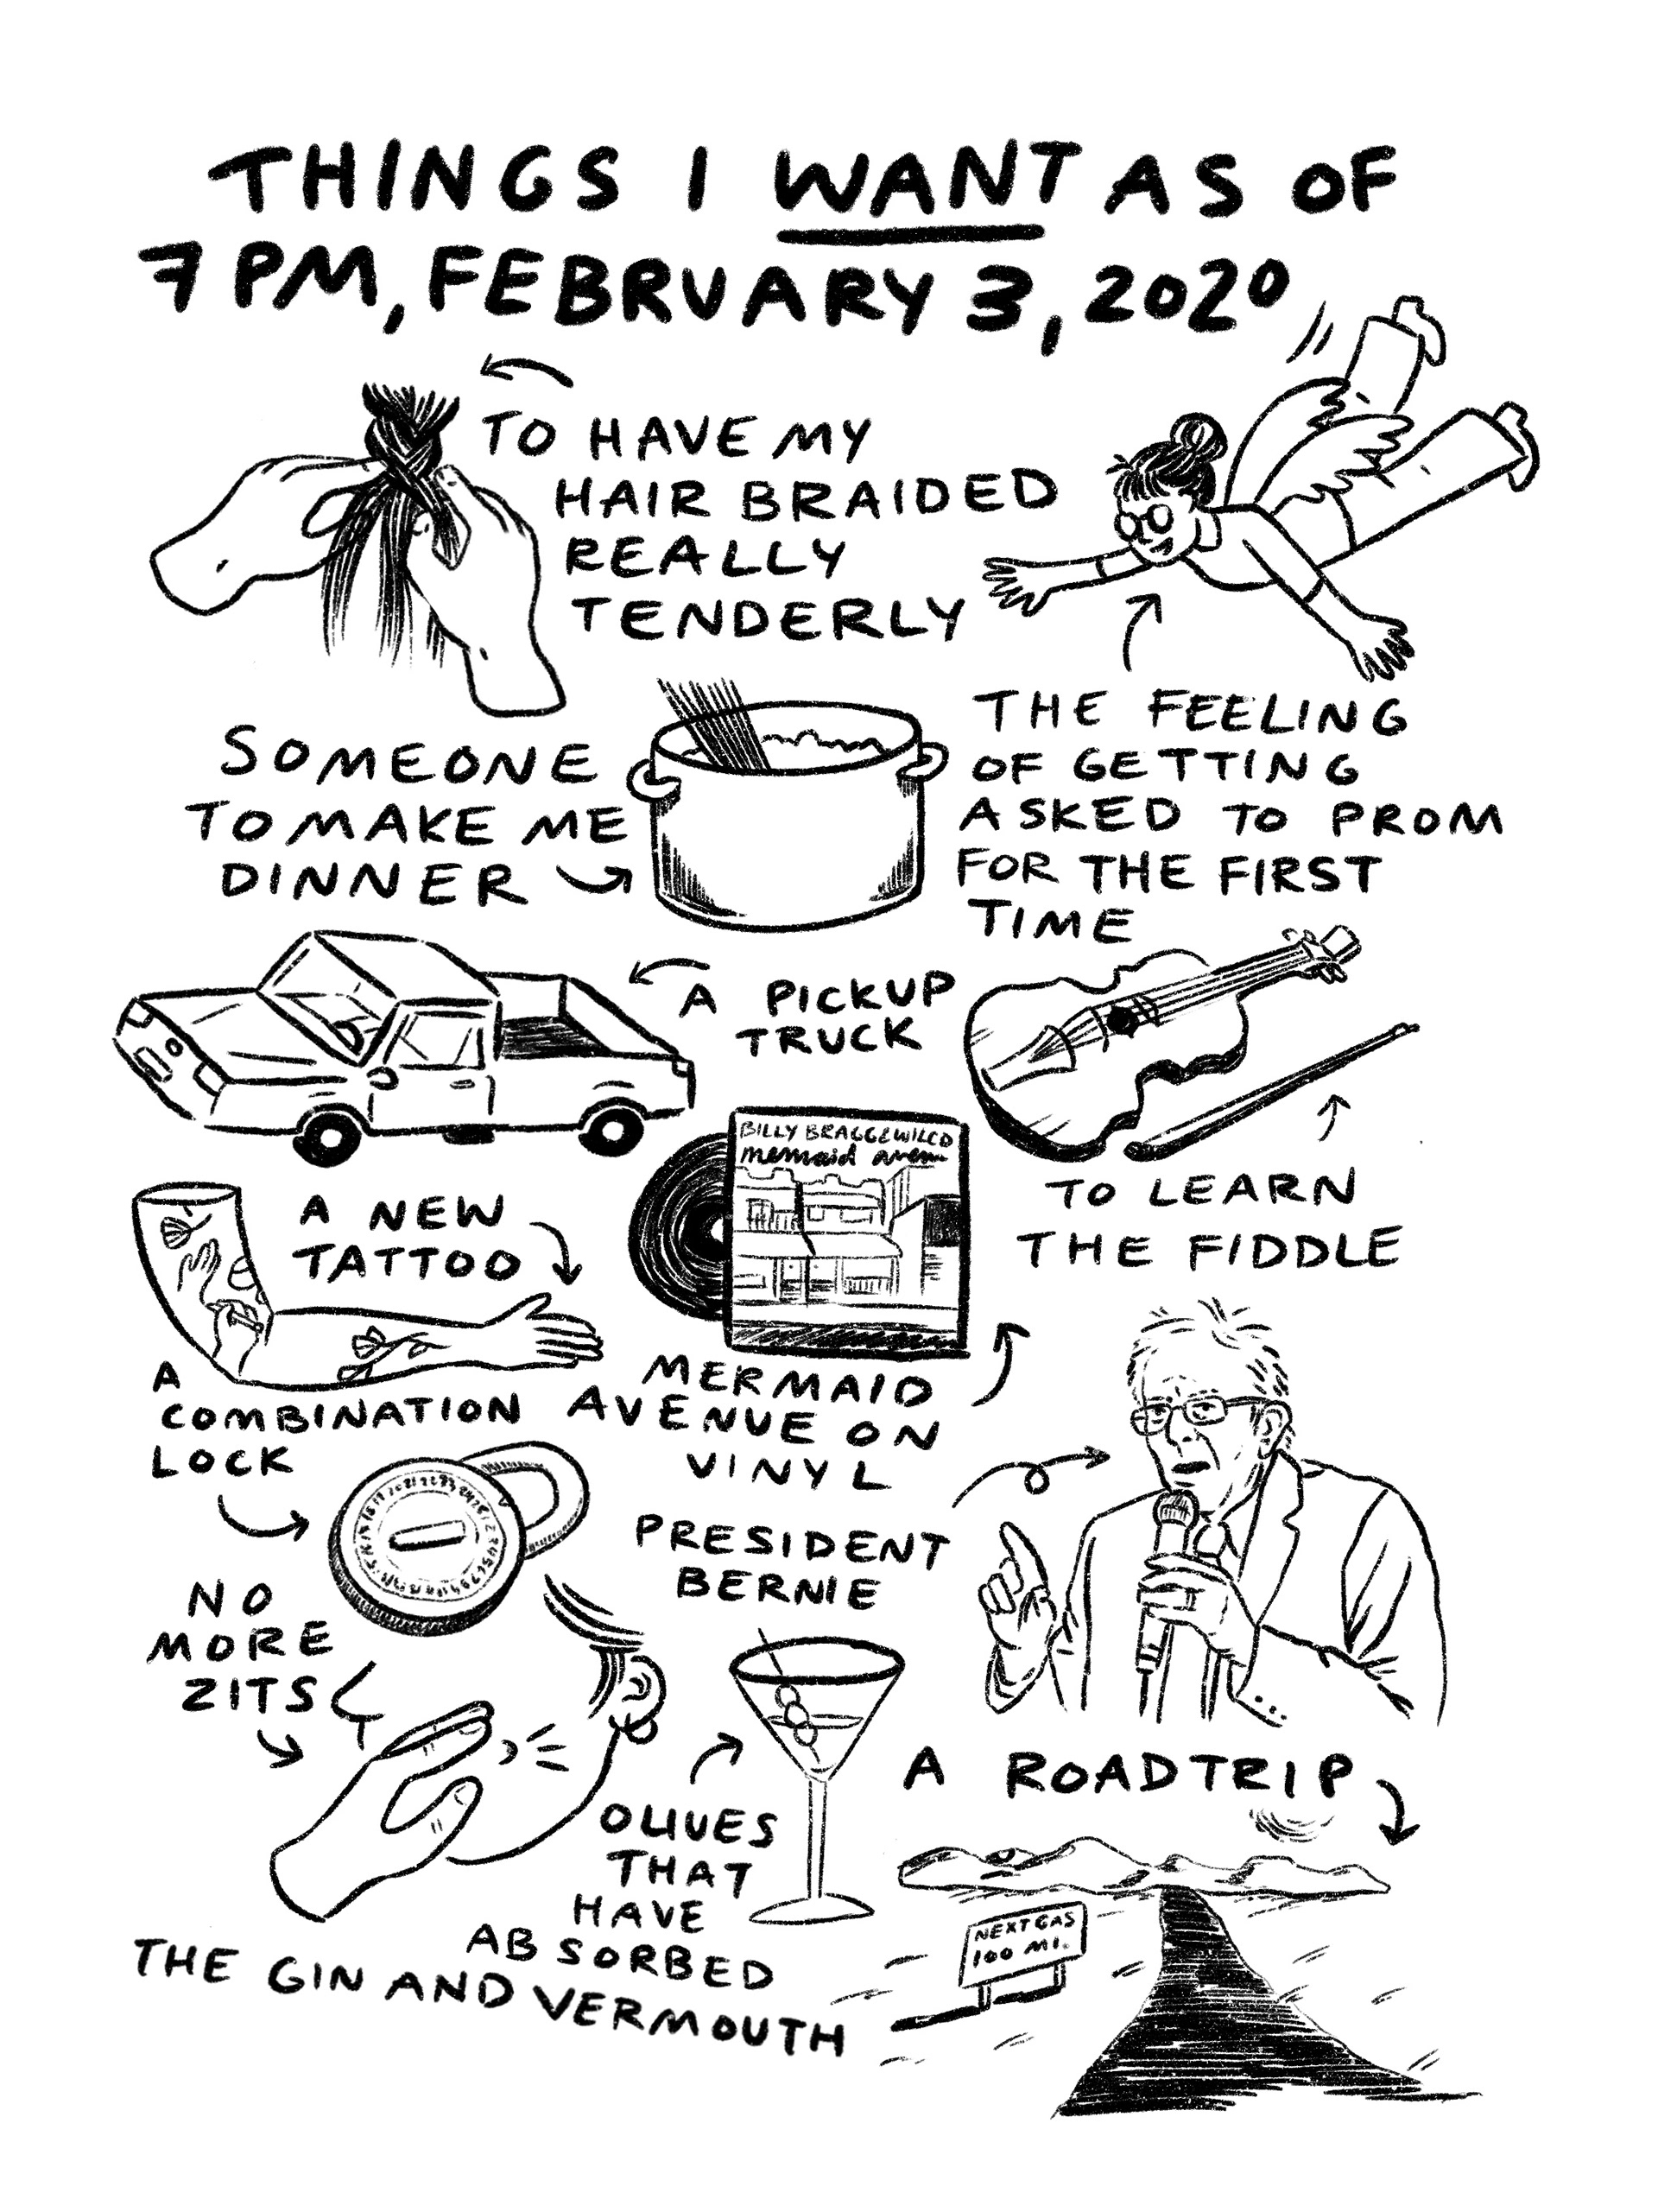 THINGS I WANT AS OF
7 PM, FEBRUARY 3, 2020
TO HAVE MY
HAIR BRAIDED
REALLY
TENDERLY
THE FEELING
OF GETTING
ASKED TO PROM
FOR THE FIRST
TIME
SOMEONE
TO MAKE ME
DINNER
A PICKUP
TRUCK
TO LEARN
THE FIDDLE
A NEW
TATTOO
BILLY BRAGG & WILCO
mermaid avenue
MERMAID
AVENUE ON
VINYL
A
COMBINATION
LOCK
PRESIDENT
BERNIE
NO
MORE
ZITS
OLIVES
THAT
HAVE
ABSORBED
THE GIN AND VERMOUTH
A ROADTRIP
NEXT GAS
100 MI.